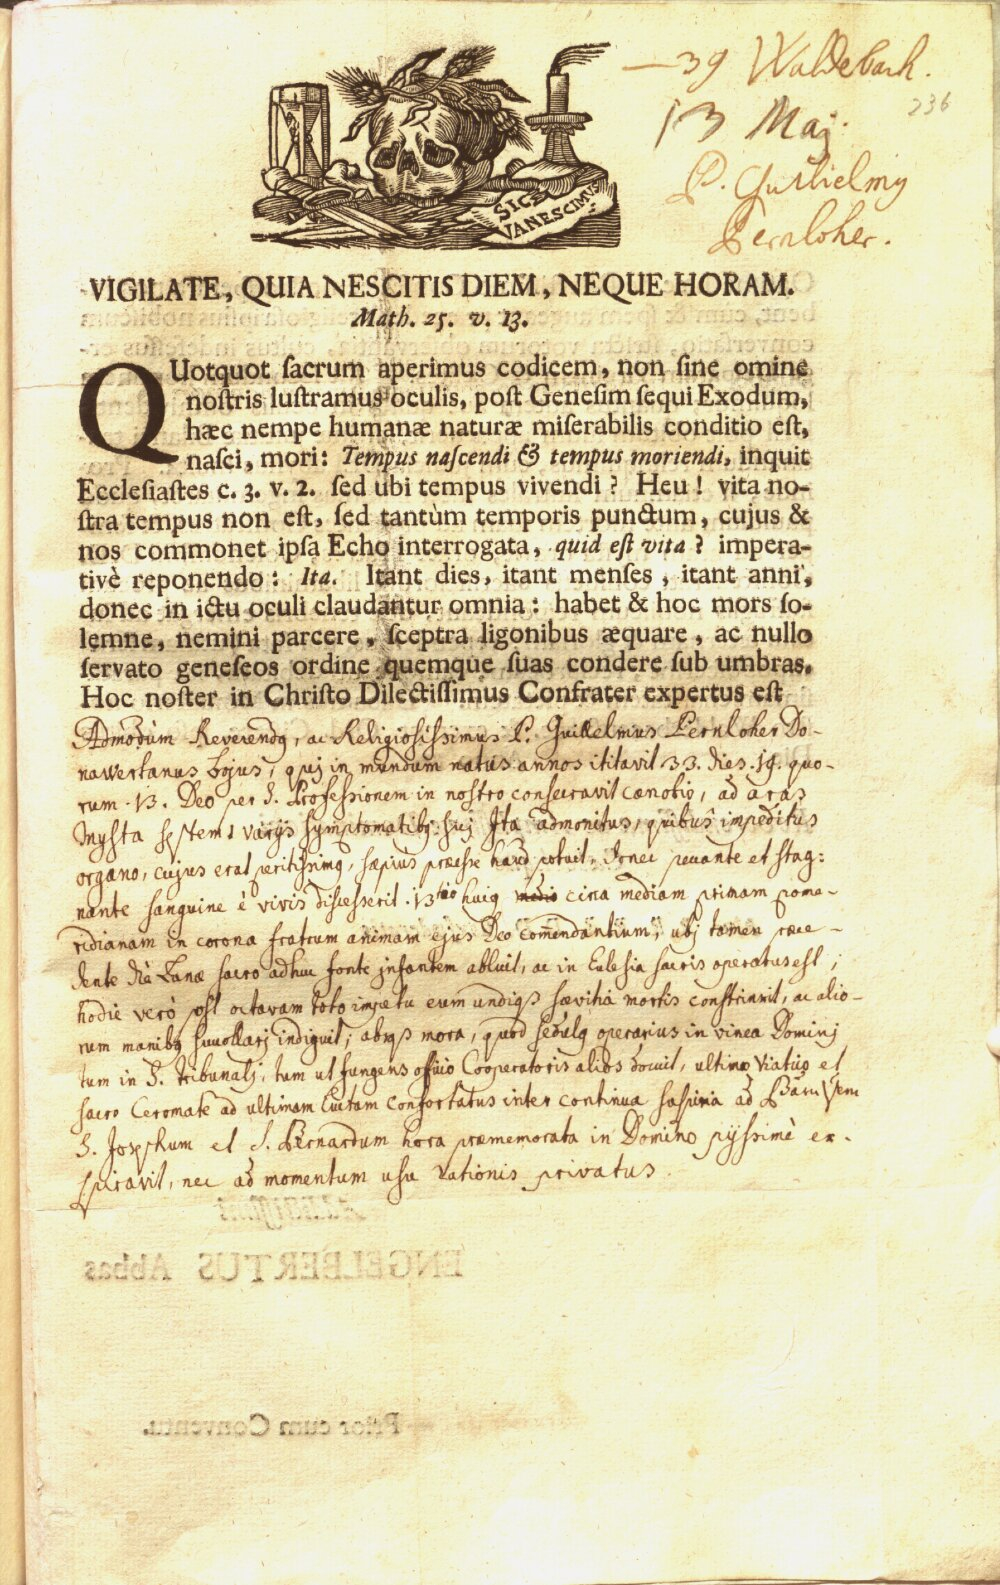 — 39 Waldebach.
236
13 Maj.
P. Guilielmy
Pernloher.
SIC
VANESCIMUS
VIGILATE, QUIA NESCITIS DIEM, NEQUE HORAM.
Math. 25. v. 13.
QUotquot ſacrum aperimus codicem, non ſine omine
noſtris luſtramus oculis, poſt Geneſim ſequi Exodum,
hæc nempe humanæ naturæ miſerabilis conditio eſt,
naſci, mori: Tempus naſcendi & tempus moriendi, inquit
Eccleſiaſtes c. 3. v. 2. ſed ubi tempus vivendi? Heu! vita no-
ſtra tempus non eſt, ſed tantùm temporis punctum, cujus &
nos commonet ipſa Echo interrogata, quid eſt vita? impera-
tivè reponendo: Ita. Itant dies, itant menſes, itant anni,
donec in ictu oculi claudantur omnia: habet & hoc mors ſo-
lemne, nemini parcere, ſceptra ligonibus æquare, ac nullo
ſervato geneſeos ordine quemque ſuas condere ſub umbras.
Hoc noſter in Chriſto Dilectiſſimus Confrater expertus eſt
Admodùm Reverendg, ac Religiosissimus P. Guillelmus Pernloher Do-
nawertanus Bojus, quj in mundum natus annos ititavit 33. dies. 19. quo-
rum. 13. Deo per S. Professionem in nostro consecravit cænobio, ad aras
Mysta septem varijs symptomatibg suj Ita admonitus, quibus impeditus
organo, cujus erat peritissimg, sæpius præesse haud potuit, donec peccante et stag:
nante sanguine è vivis discesserit. 13tio huig circa mediam primam pome-
ridianam in corona fratrum animam ejus Deo commendantium, ubj tamen præce-
dente die Lunæ sacro adhuc fonte jnfantem abluit, ac in Eclesia sacris operatus est;
hodie verò post octavam toto impetu eum undiqs sævitia mortis constrinxit, ac alio-
rum manibg indiguit, absqs mora, quod sedulg operarius in vinea Dominj
tum in S. tribunalj, tum ut fungens officio Cooperatoris alios docuit, ultimo Viatico et
sacro Ceromate ad ultimam luctam Confortatus inter continua suspiria ad
S. Josephum et S. Bernardum hora præmemorata in Domino pijssimè ex-
spiravit, nec ad momentum usu rationis privatus.
ENGELBERTUS Abbas
Prior cum Conventu.